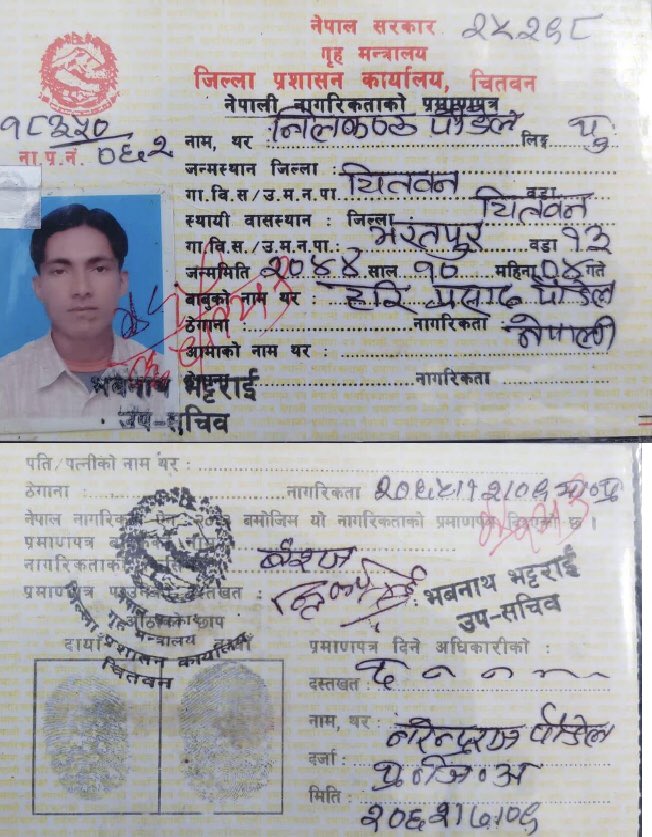 नेपाल सरकार २५२६८
गृह मन्त्रालय
जिल्ला प्रशासन कार्यालय, चितवन
नेपाली नागरिकताको प्रमाणपत्र
१८३५०
ना.प.नं. ०६२
नाम, थर : निलकण्ठ पौडेल लिङ्ग पु
जन्मस्थान जिल्ला : चितवन
गा.वि.स/उ.म.न.पा वडा
स्थायी वासस्थान : जिल्ला चितवन
गा.वि.स./उ.म.न.पा.: भरतपुर वडा १३
जन्ममिति २०४४ साल १० महिना ०४ गते
बाबुको नाम थर : हरि प्रसाद पौडेल
ठेगाना : नागरिकता : नेपाली
आमाको नाम थर :
नागरिकता
भवनाथ भट्टराई
उप-सचिव
पति/पत्नीको नाम थर :
ठेगाना : नागरिकता
नेपाल नागरिकता बमोजिम यो नागरिकताको प्रमाणपत्र छ ।
प्रमाणपत्र
नागरिकताको वंशज
प्रमाणपत्र दस्तखत :
भवनाथ भट्टराई
उप-सचिव
नेपाल सरकार
गृह मन्त्रालय
जिल्ला प्रशासन कार्यालय
चितवन
दायाँ
प्रमाणपत्र दिने अधिकारीको :
दस्तखत : द
नाम, थर : नरेन्द्रराज पौडेल
दर्जा : प्र.जि.अ
मिति : २०६२।७।०६